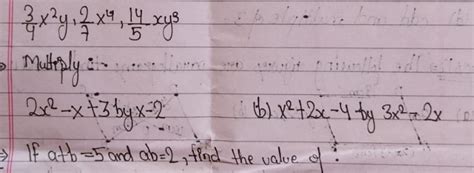 3/4 x²y, 2/7 x⁴, 14/5 xy³
Multiply :-
2x² - x + 3 by x - 2 (b) x² + 2x - 4 by 3x² - 2x
If a+b = 5 and ab = 2, find the value of :